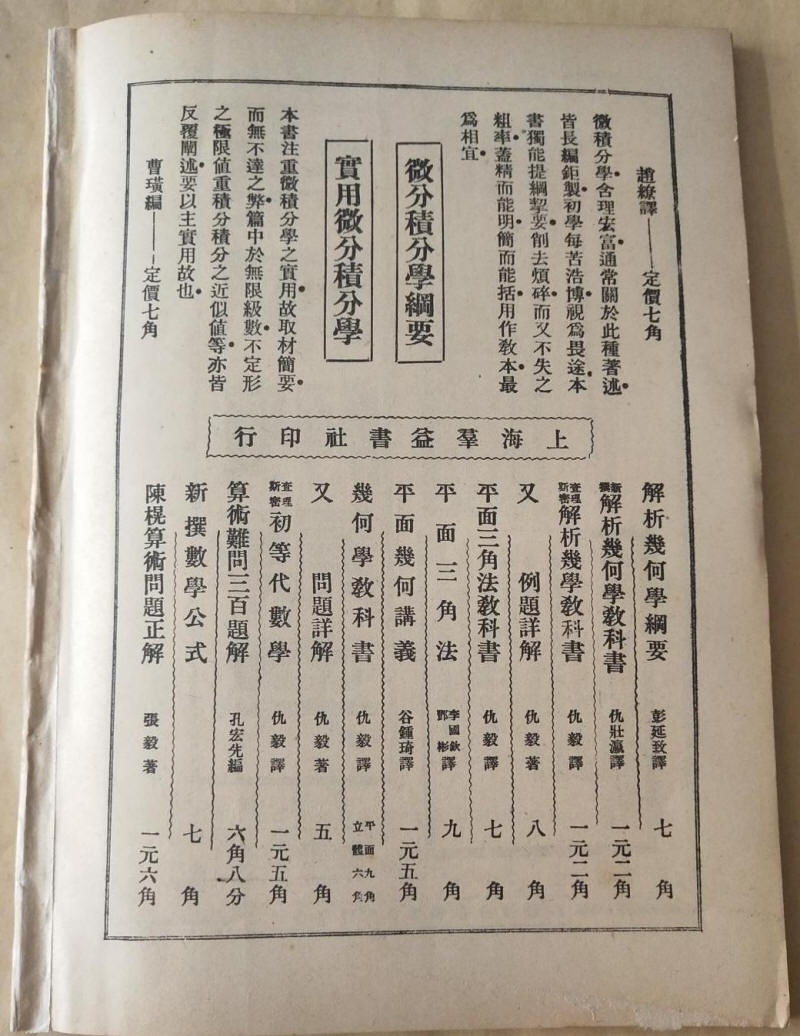 微分積分學綱要
趙繚譯——定價七角
微積分學含理宏富通常關於此種著述
皆長編鉅製初學每苦浩博視爲畏途本
書獨能提綱挈要削去煩碎而又不失之
粗率蓋精而能明簡而能括用作教本最
爲相宜
實用微分積分學
本書注重微積分學之實用故取材簡要
而無不達之弊篇中於無限級數不定形
之極限値重積分積分之近似値等亦皆
反覆闡述要以主實用故也
曹璜編——定價七角
上海羣益書社印行
解析幾何學綱要 彭延致譯 七角
新撰解析幾何學教科書 仇壯瀛譯 一元二角
查理斯密解析幾學教科書 仇毅譯 一元二角
又 例題詳解 仇毅著 八角
平面三角法教科書 仇毅譯 七角
平面三角法 李國欽 鄧彬譯 九角
平面幾何講義 谷鍾琦譯 一元五角
幾何學教科書 仇毅譯 平面九角 立體六角
又 問題詳解 仇毅著 五角
查理斯密初等代數學 仇毅譯 一元五角
算術難問三百題解 孔宏先編 六角八分
新撰數學公式 七角
陳榥算術問題正解 張毅著 一元六角